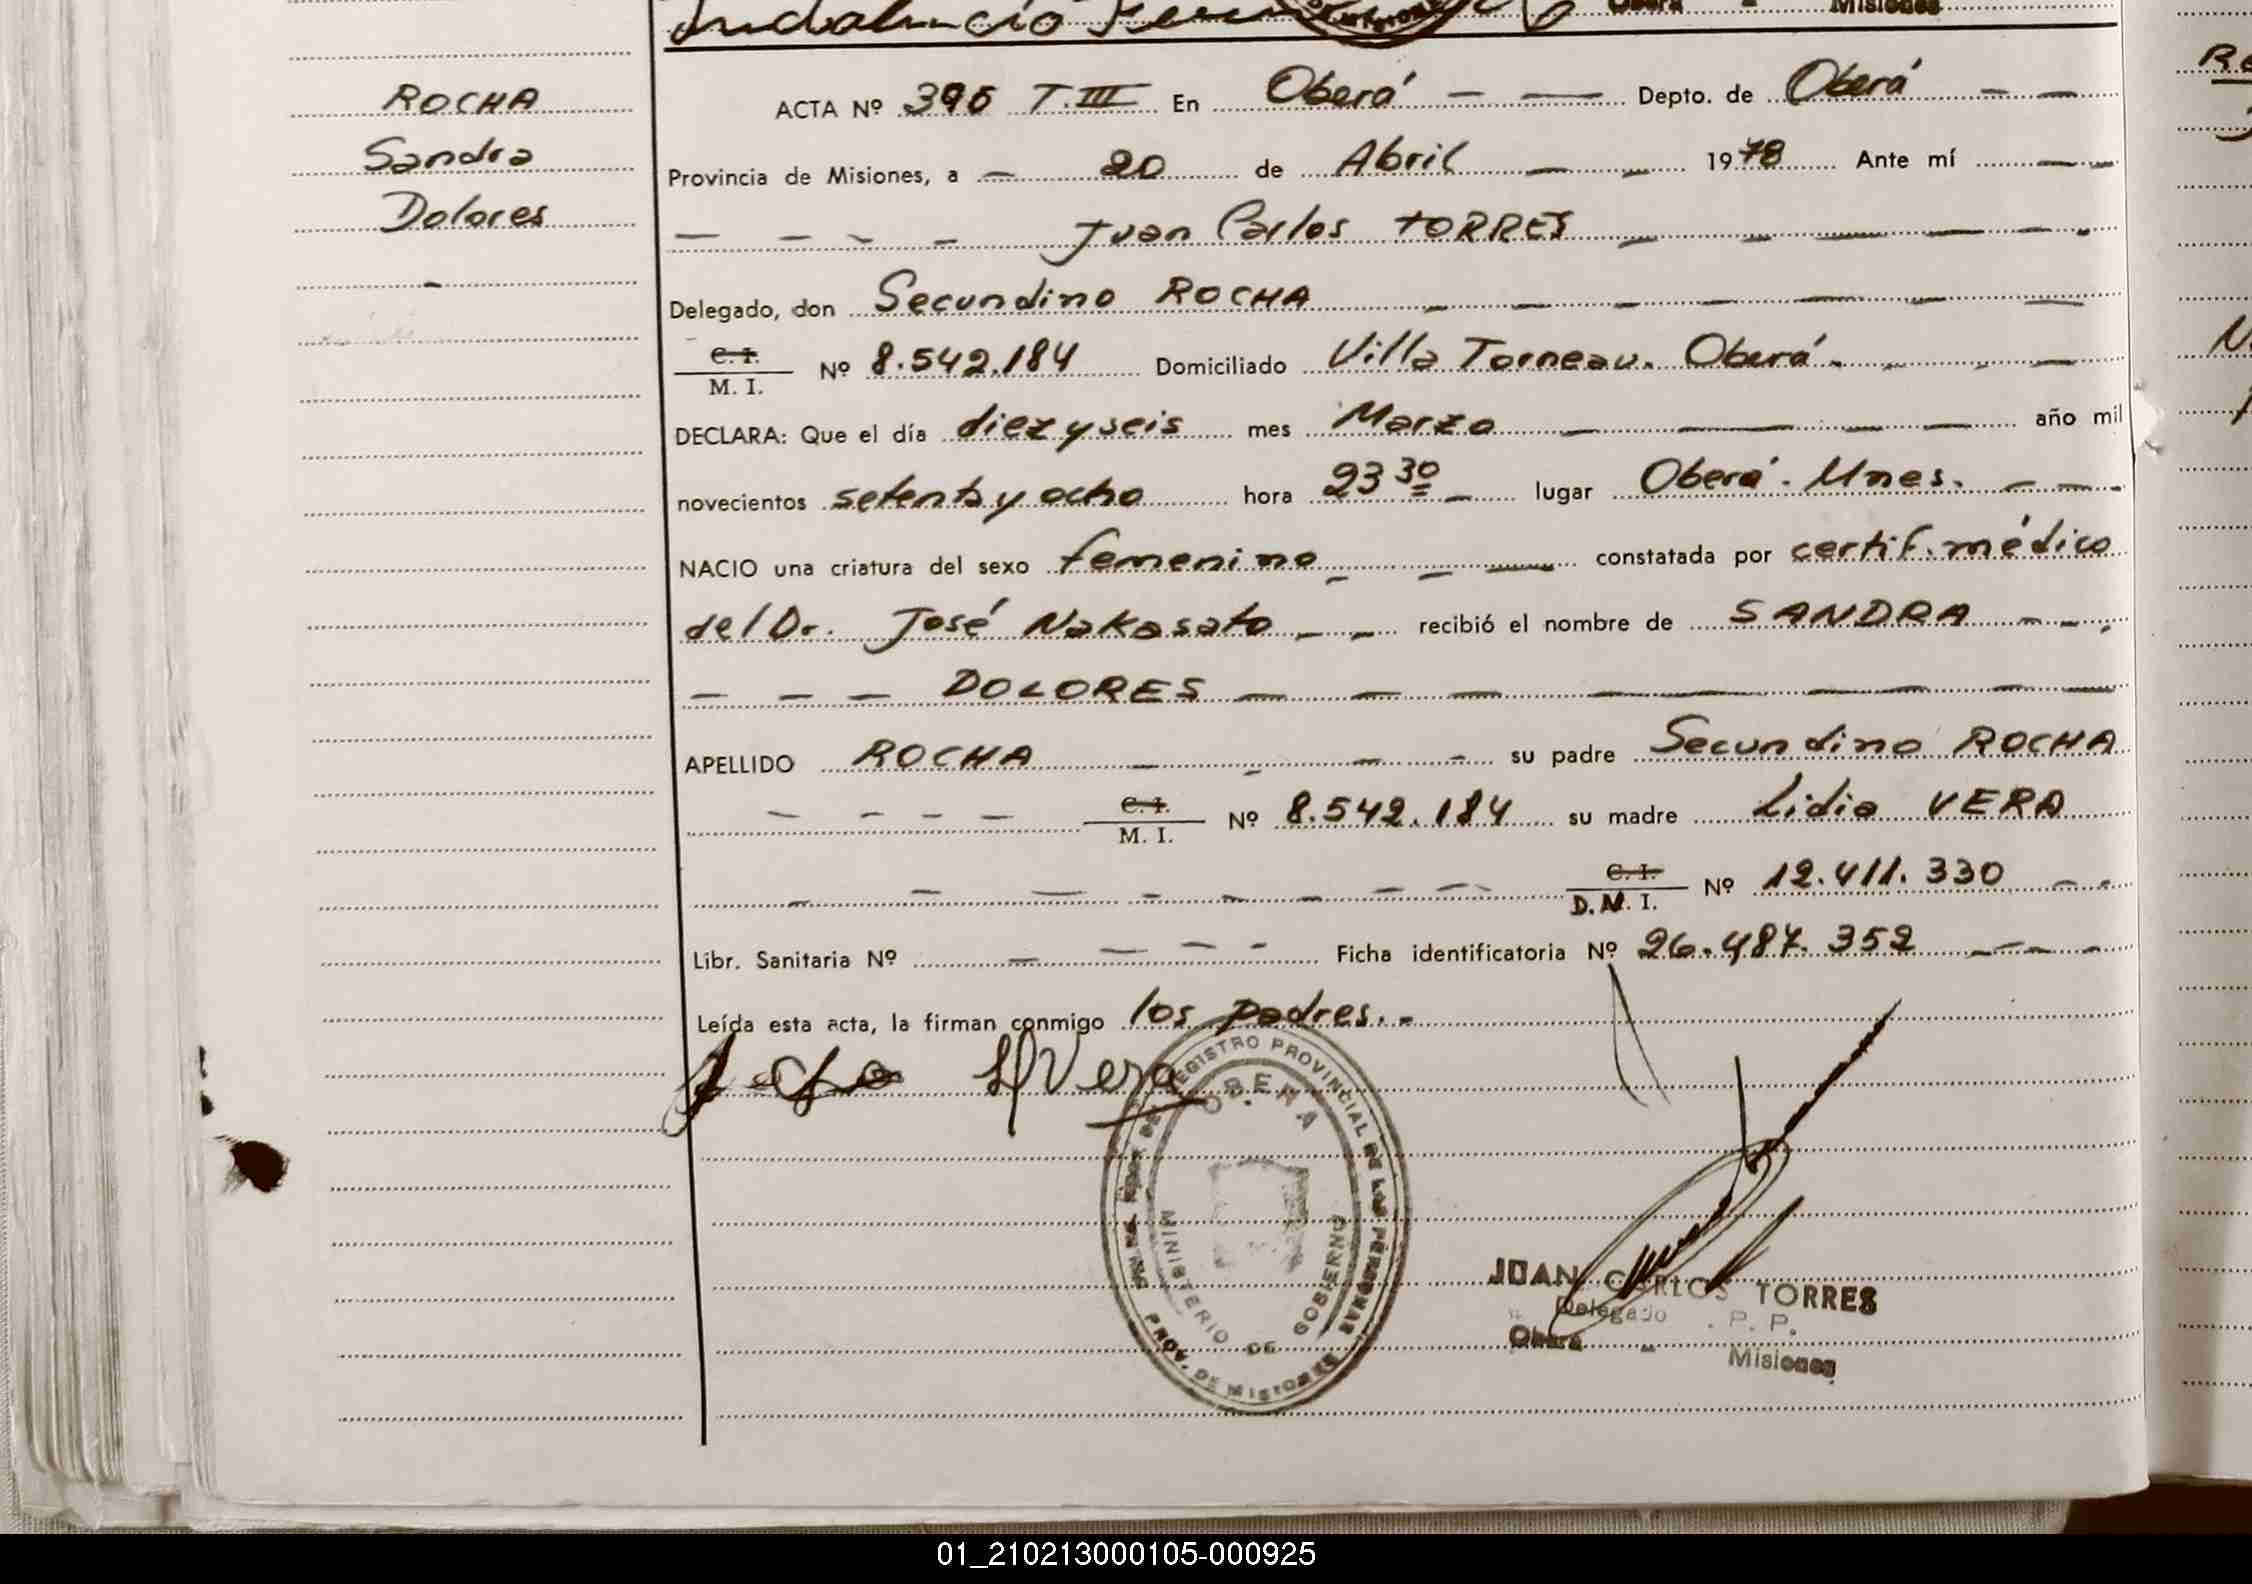 Indalencio
Oberá - Misiones
ROCHA
Sandra
Dolores
-
ACTA Nº 396 T.III En Oberá - — Depto. de Oberá - —
Provincia de Misiones, a - 20 de Abril — - 1978 Ante mí — -
— - - - Juan Carlos TORRES - - — — - -
Delegado, don Secundino ROCHA - — - — — - —
C. I.
M. I.
Nº 8.542.184 Domiciliado Villa Torneau. Oberá. - - —
DECLARA: Que el día diez y seis mes Marzo - — - — año mil
novecientos setenta y ocho hora 23 30 - lugar Oberá. Mnes. - - -
NACIO una criatura del sexo femenino - - — constatada por certif. médico
del Dr. José Nakasato - - recibió el nombre de SANDRA - - -
- - - DOLORES — — — — — - - —
APELLIDO ROCHA - - - - su padre Secundino ROCHA
- - - - C. I.
M. I.
Nº 8.542.184 su madre Lidia VERA
- - — - - - - - C. I.
D.N. I.
Nº 12.411.330 - -
Libr. Sanitaria Nº - — - - Ficha identificatoria Nº 26.487.352 - - -
Leída esta acta, la firman conmigo los padres. -
Vera
REGISTRO PROVINCIAL DE LAS PERSONAS
OBERA
MINISTERIO DE GOBERNO
PROV. DE MISIONES
JUAN CARLOS TORRES
Delegado . P. P.
Oberá - Misiones
01_210213000105-000925